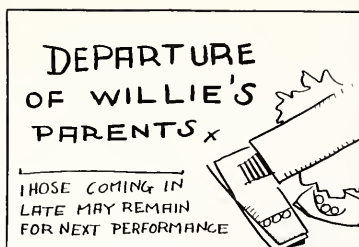 DEPARTURE
OF WILLIE'S
PARENTS x
THOSE COMING IN
LATE MAY REMAIN
FOR NEXT PERFORMANCE